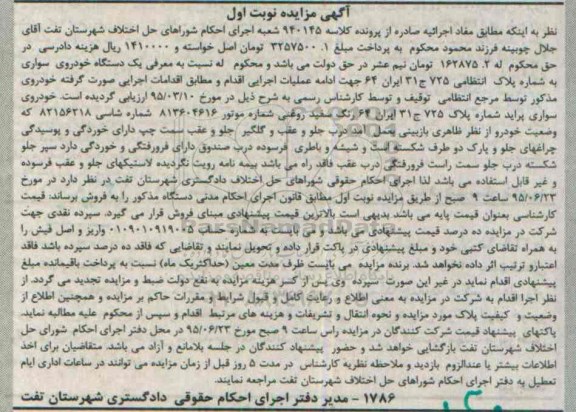 آگهی مزایده نوبت اول
نظر به اینکه مطابق مفاد اجرائیه صادره از پرونده کلاسه ۹۴۰۱۴۵ شعبه اجرای احکام شوراهای حل اختلاف شهرستان تفت آقای
جلال چوبینه فرزند محمود محکوم به پرداخت مبلغ ۱. ۳۲۵۷۵۰۰ تومان اصل خواسته و ۱۴۱۰۰۰۰ ریال هزینه دادرسی در
حق محکوم له ۲. ۱۶۲۸۷۵ تومان نیم عشر در حق دولت می باشد و محکوم له نسبت به معرفی یک دستگاه خودروی سواری
به شماره پلاک انتظامی ۷۲۵ ج۳۱ ایران ۶۴ جهت ادامه عملیات اجرایی اقدام و مطابق اقدامات اجرایی صورت گرفته خودروی
مذکور توسط مرجع انتظامی توقیف و توسط کارشناس رسمی به شرح ذیل در مورخ ۹۵/۰۳/۱۰ ارزیابی گردیده است. خودروی
سواری پراید شماره پلاک ۷۲۵ ج۳۱ ایران ۶۴ رنگ سفید روغنی شماره موتور ۸۱۳۶۰۴۶۱۶ شماره شاسی ۸۲۱۵۶۲۱۸ که
وضعیت خودرو از نظر ظاهری بازبینی بعمل آمد درب جلو و عقب و گلگیر جلو و عقب سمت چپ دارای خوردگی و پوسیدگی
چراغهای جلو و پارک دو طرف شکسته است و شیشه و باطری فرسوده درب صندوق دارای فرورفتگی و خوردگی دارد سپر جلو
شکسته درب جلو سمت راست فرورفتگی درب عقب فاقد راه می باشد بیمه نامه رویت نگردیده لاستیکهای جلو و عقب فرسوده
و غیر قابل استفاده می باشد لذا اجرای احکام حقوقی شوراهای حل اختلاف دادگستری شهرستان تفت در نظر دارد در مورخ
۹۵/۰۶/۲۳ ساعت ۹ صبح از طریق مزایده نوبت اول مطابق قانون اجرای احکام مدنی دستگاه مذکور را به فروش برساند: قیمت
کارشناسی بعنوان قیمت پایه می باشد بدیهی است بالاترین قیمت پیشنهادی مبنای فروش قرار می گیرد. سپرده نقدی جهت
شرکت در مزایده ده درصد قیمت پیشنهادی می باشد که می بایست به شماره حساب واریز و اصل فیش را
به همراه تقاضای کتبی خود و مبلغ پیشنهادی در پاکت قرار داده و تحویل نمایند و تقاضایی که فاقد ده درصد سپرده باشد فاقد
اعتبارو ترتیب اثر داده نخواهد شد. برنده مزایده می بایست ظرف مدت معین (حداکثریک ماه) نسبت به پرداخت باقیمانده مبلغ
پیشنهادی اقدام نماید در غیر این صورت سپرده وی پس از کسر هزینه مزایده به نفع دولت ضبط و مزایده تجدید می گردد. از
نظر اجرا اقدام به شرکت در مزایده به معنی اطلاع و رعایت کامل و قبول شرایط و مقررات حاکم بر مزایده و همچنین اطلاع از
وضعیت و کیفیت پلاک مورد مزایده و نحوه انتقال و تشریفات و هزینه های مرتبط اقدام و سپس از محکوم علیه مطالبه نماید.
پاکتهای پیشنهاد قیمت شرکت کنندگان در مزایده راس ساعت ۹ صبح مورخ ۹۵/۰۶/۲۳ در محل دفتر اجرای احکام شورای حل
اختلاف شهرستان تفت بازگشایی خواهد شد و حضور پیشنهاد کنندگان در جلسه بلامانع و آزاد می باشد. متقاضیان برای اخذ
اطلاعات بیشتر یا عندالزوم بازدید و ملاحظه نظریه کارشناس در مدت ۵ روز قبل از زمان مزایده می توانند در ساعات اداری ایام
تعطیل به دفتر اجرای احکام شوراهای حل اختلاف شهرستان تفت مراجعه نمایند.
۱۷۸۶ - مدیر دفتر اجرای احکام حقوقی دادگستری شهرستان تفت